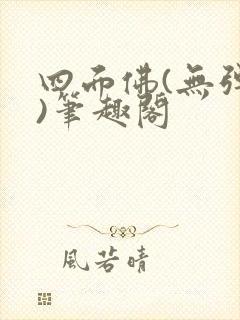 四面佛(無弹
)筆趣閣
風若晴